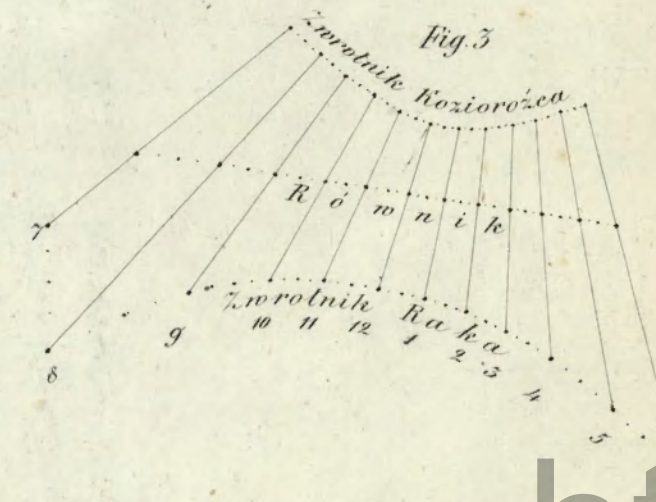 Fig. 3
Zwrotnik Koziorożca
Równik
Zwrotnik Raka
7
8
9
10
11
12
1
2
3
4
5